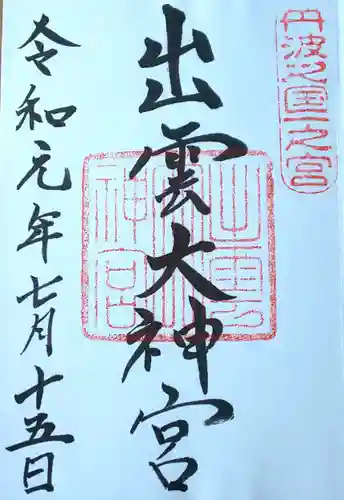 丹波之国一之宮
出雲大神宮
令和元年七月十五日